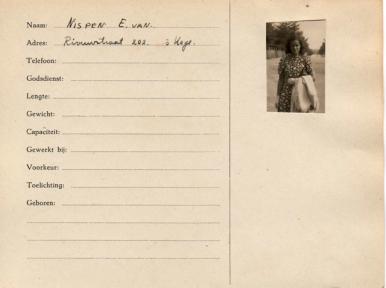 Naam: NISPEN E. VAN.
Adres: Riouwstraat 202. 's Hage.
Telefoon:
Godsdienst:
Lengte:
Gewicht:
Capaciteit:
Gewerkt bij:
Voorkeur:
Toelichting:
Geboren: